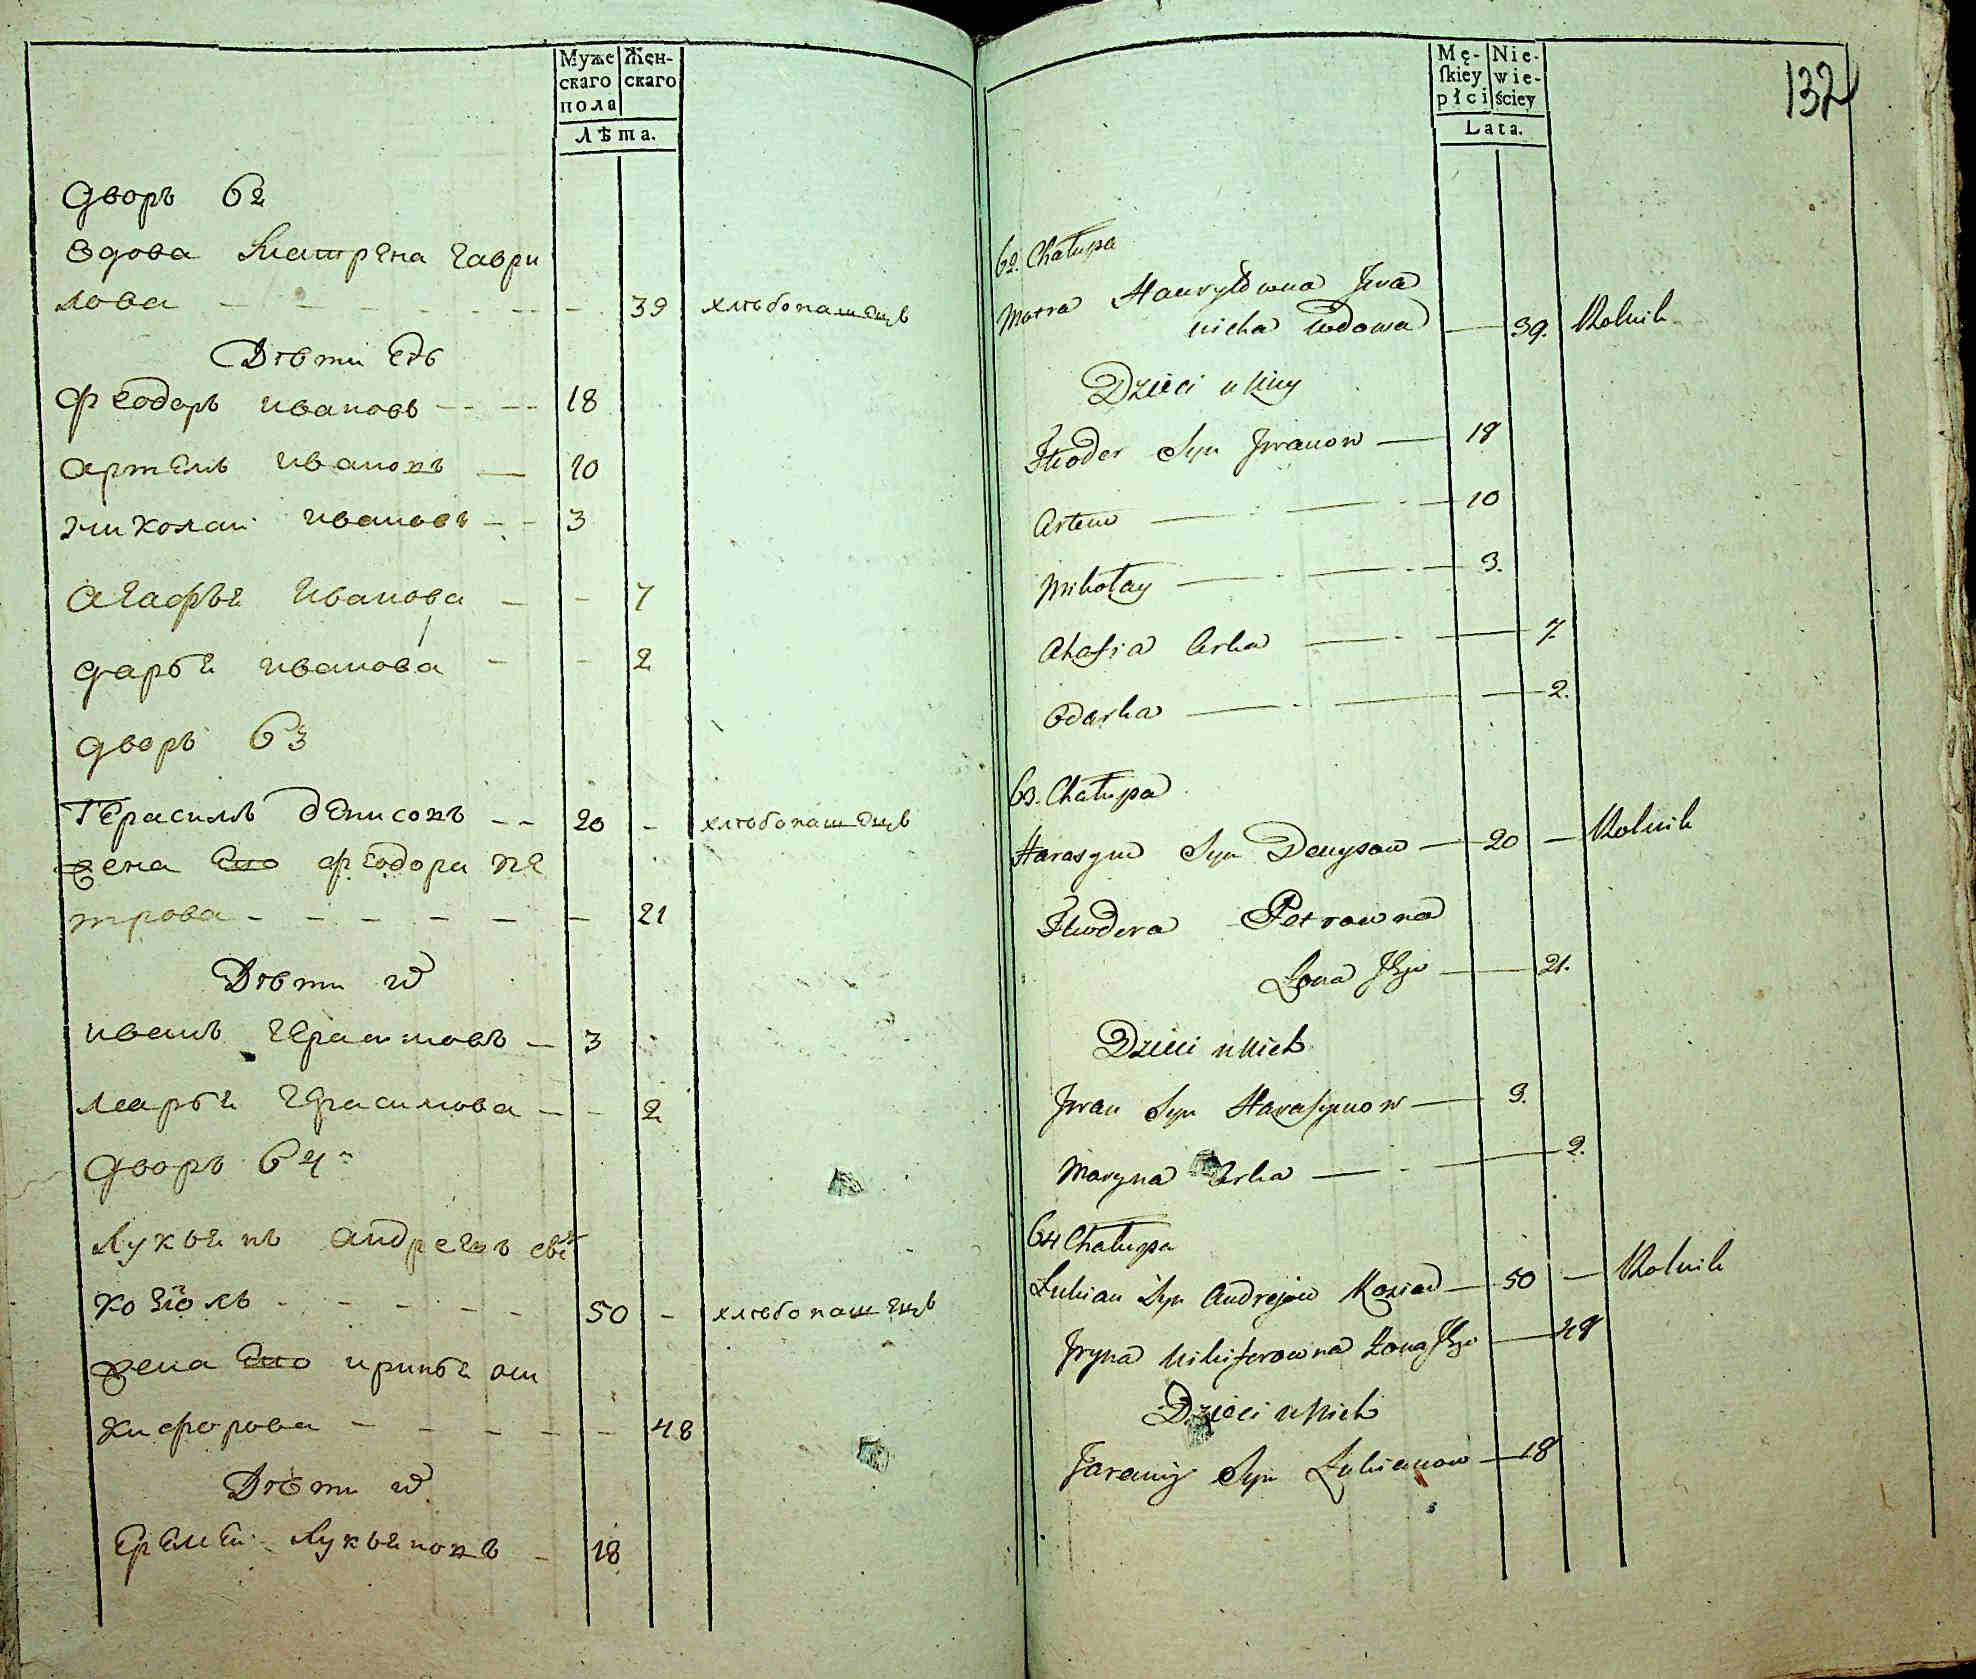 Муже Жен-
скаго скаго
пола
Лѣта.
дворъ 62
вдова Матрена гаври
лова - - - - - - - 39 хлѣбопашецъ
Дѣти еѣ
Феодоръ ивановъ - - - - 18
артемъ ивановъ — 10
николаи ивановъ - - 3
агафья иванова - - 7
дарья иванова - - 2
дворъ 63
герасимъ денисовъ - - 20 - хлѣбопашецъ
жена его феодора пе
трова - - - - - - 21
Дѣти их
иванъ герасимовъ - 3
марья герасимова - - 2
дворъ 64
лукьянъ андреевъ
козіолъ - - - - - 50 - хлѣбопашецъ
жена его иринья
кифорова - - - - - 48
Дѣти их
еремеи лукьяновъ - 18
132
Mę- Nie-
ſkiey wie-
płci ściey
Lata.
62. Chałupa
Motra Hauryłowna Iwa
nicha wdowa — 39. Rolnik
Dzieci u Niey
Fteodor Syn Iwanow — 18
Artem — 10
Mikołay — 3.
Ahafia Corka — 7
Odarka — 2.
63. Chałupa
Harasym Syn Denysow — 20 — Rolnik
Fteodora Petrowna
Żona Jego — 21.
Dzieci u Nich
Iwan Syn Harasymow — 3.
Maryna Corka — 2.
64 Chałupa
Łukian Syn Andrejow Kozioł — 50 — Rolnik
Iryna Nikiferowna Żona Jego — 48
Dzieci u Nich
Jaremiy Syn Łukianow — 18